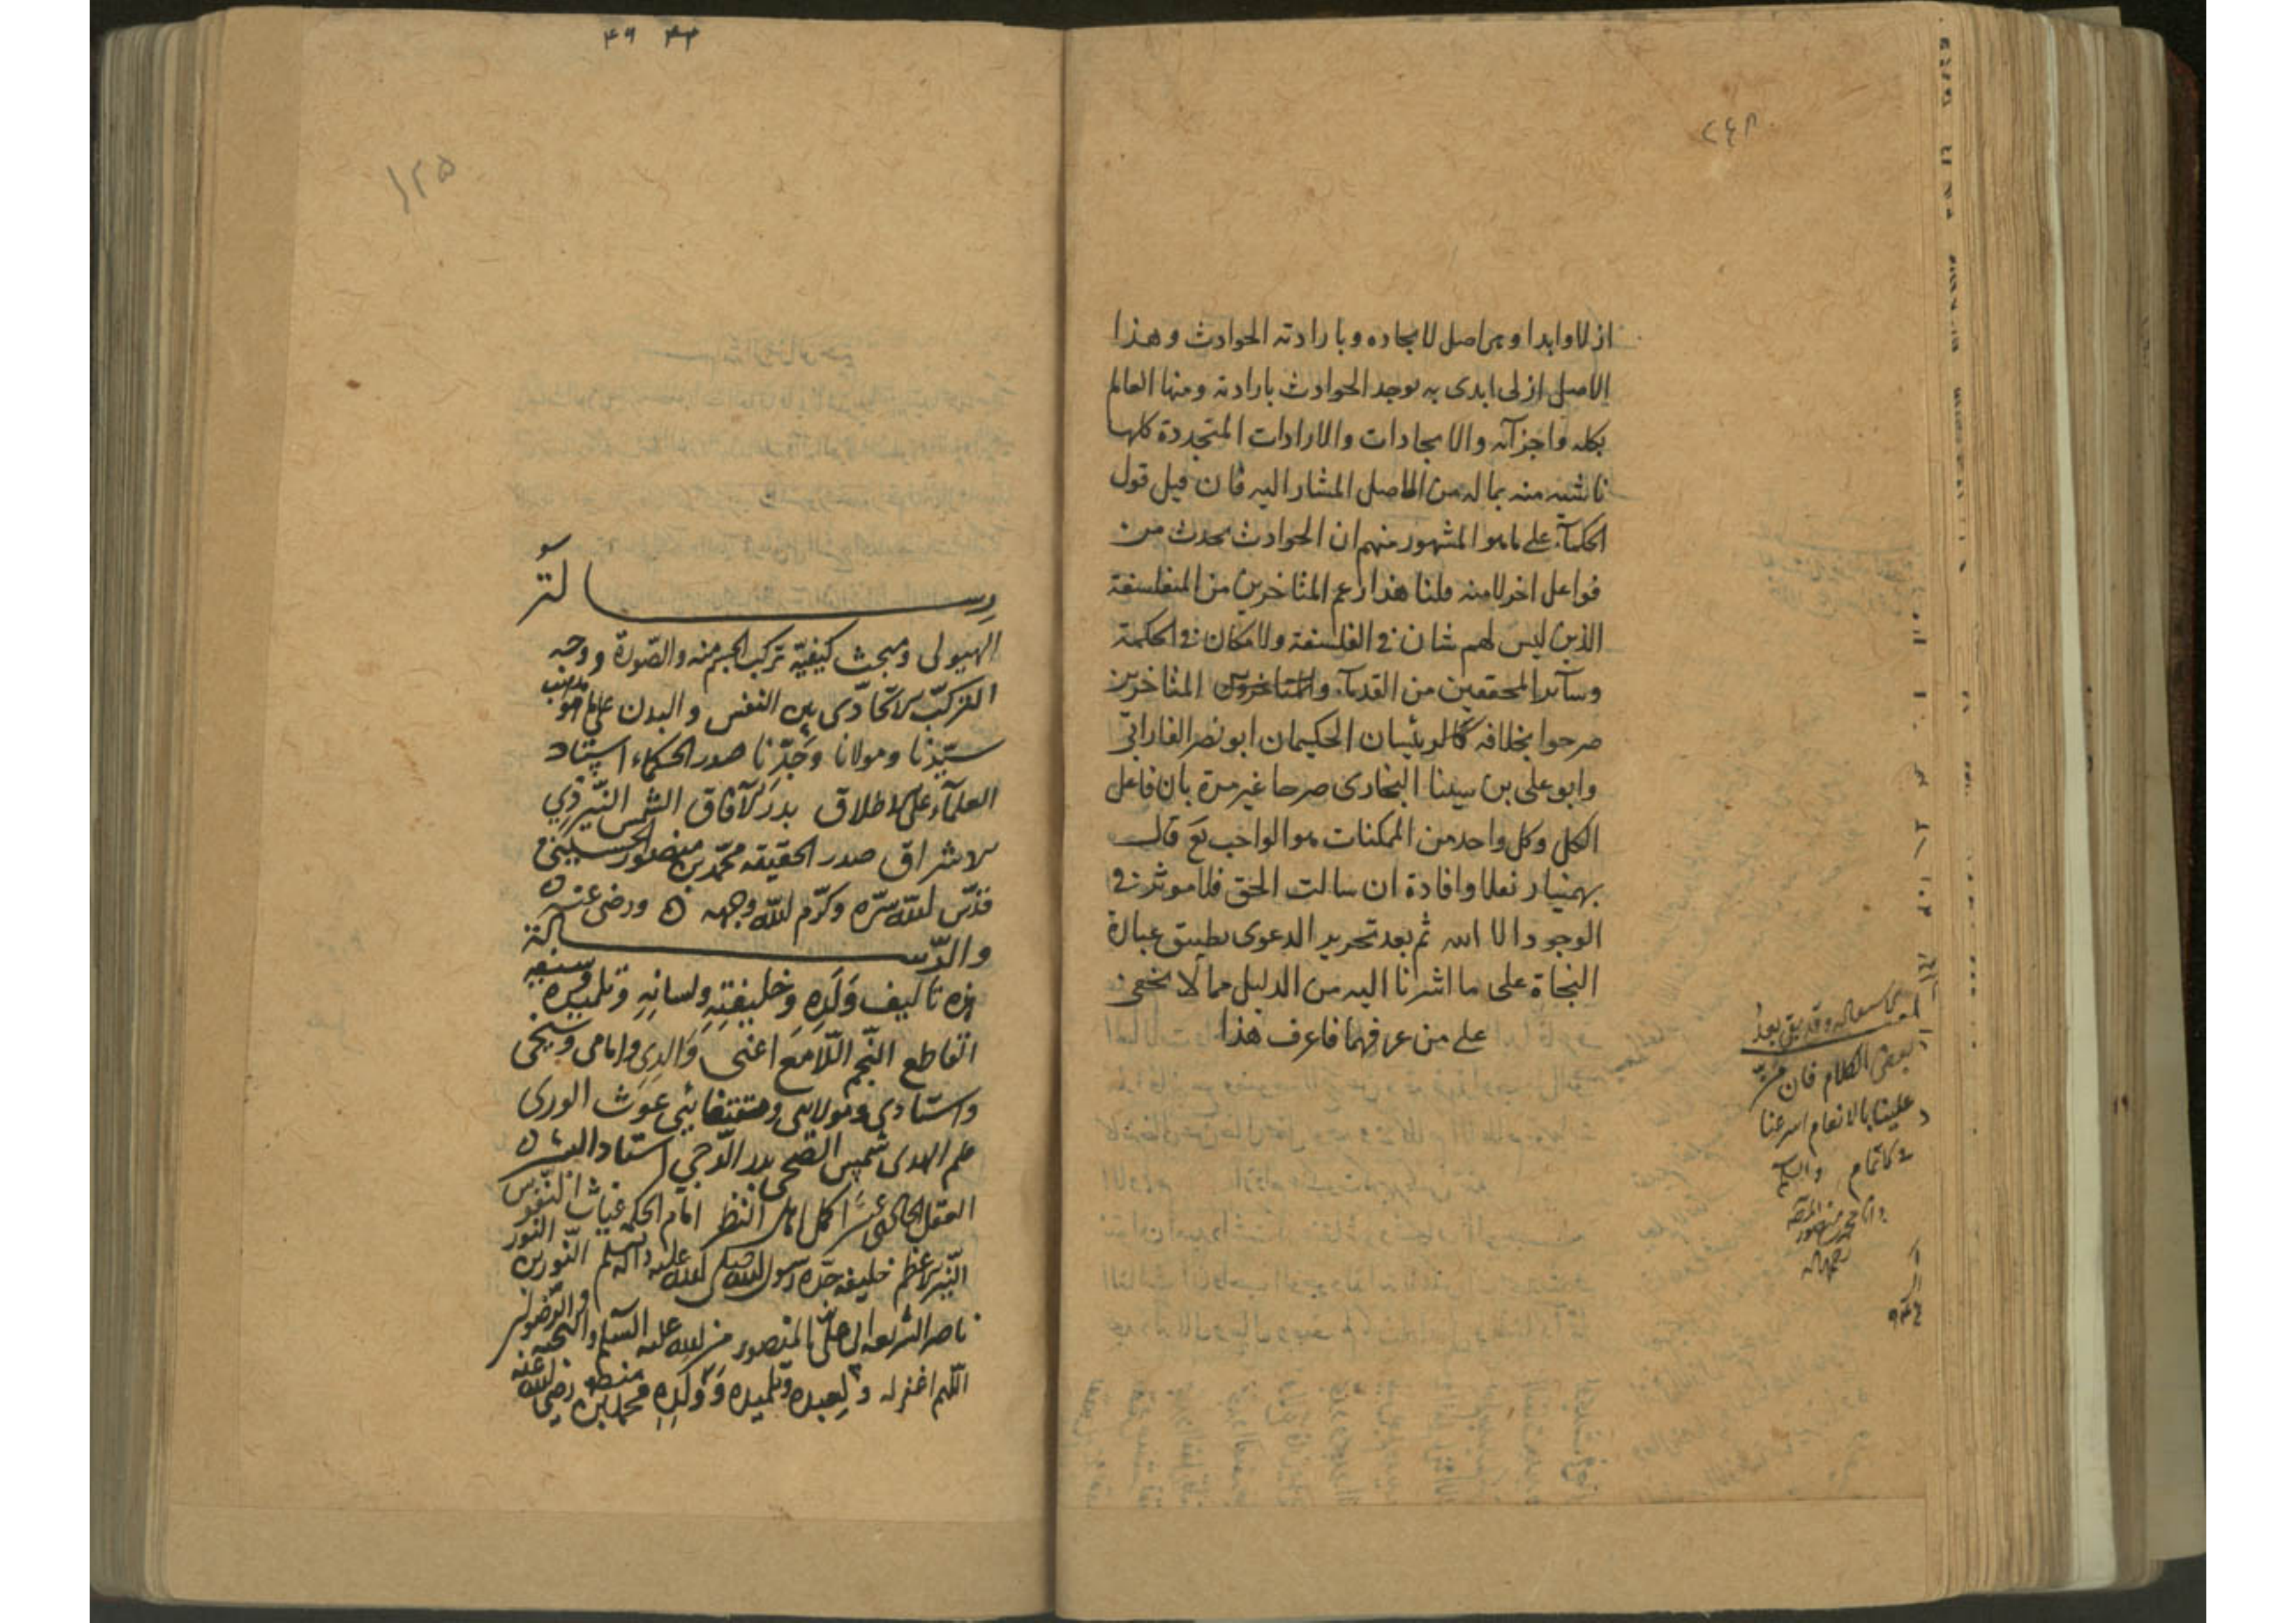 ٢٤٨
ازلا وابدا وهو اصل لايجاده وبارادته الحوادث وهذا
الاصل ازلى ابدى به يوجد الحوادث بارادته ومنها العالم
بكله واجزآئه والايجادات والارادات المتجددة كلها
ناشئه منه بماله من الاصل المشار اليه فان قيل قول
الحكمآء على ما هو المشهور منهم ان الحوادث يحدث من
فواعل اخر لا منه قلنا هذا زعم المتاخرين من المتفلسفة
الذين ليس لهم شان فى الفلسفة ولا مكان فى الحكمة
وسآئر المحققين من القدمآء والمتاخرين المتاخرين
صرحوا بخلافه كالرئيسان الحكيمان ابو نصر الفارابى
وابو على بن سينا البخارى صرحا غير مرة بان فاعل
الكل وكل واحد من الممكنات هو الواجب تع قال
بهمنيار نقلا وافادة ان سالت الحق فلا موثر فى
الوجود الا الله ثم بعد تحرير الدعوى تطبيق عبارة
النجاة على ما اشرنا اليه من الدليل مما لا يخفى
على من عرفهما فاعرف هذا
وقد بقى بعد
بعض الكلام فان
علينا بالانعام اسرعنا
فى الاتمام والسلام
محمد منصور
٩٤٤
٤٩ ٤٤
١٢٥
رسالة
الهيولى ومبحث كيفيّة تركب الجسم منه والصّورة ووجه
التركّب الاتّحادّى بين النفس والبدن على ما هو مذهب
سيّدنا ومولانا وجدّنا صدر الحكماء استاد
العلمآء على الاطلاق بدر الآفاق الشمس النيّر ذى
الاشراق صدر الحقيقه محمّد بن منصور الحسينى
قدّس الله سرّه وكرّم الله وجهه ورضى عنه
والرّسالة
هذه تاليف ولده وخليفته ولسانه وتلميذه وسيفه
القاطع النّجم اللّامع اعنى والدى وامامى وشيخى
واستادى ومولاى ومقتدائى غوث الورى
علم الهدى شمس الضحى بدر الدّجى استاد البشر
العقل الحادى عشر اكمل اهل النظر امام الحكمه غياث النّفوس
النّير الاعظم خليفه جدّه رسول الله صلى الله عليه وآله وسلم النّورين النور
ناصر الشريعه ابى على المنصور من الله عليه السلام والتحيه والرّضوان
اللّهم اغفر له ولعبده وتلميذه وولده محمد بن منصور رضى الله عنه